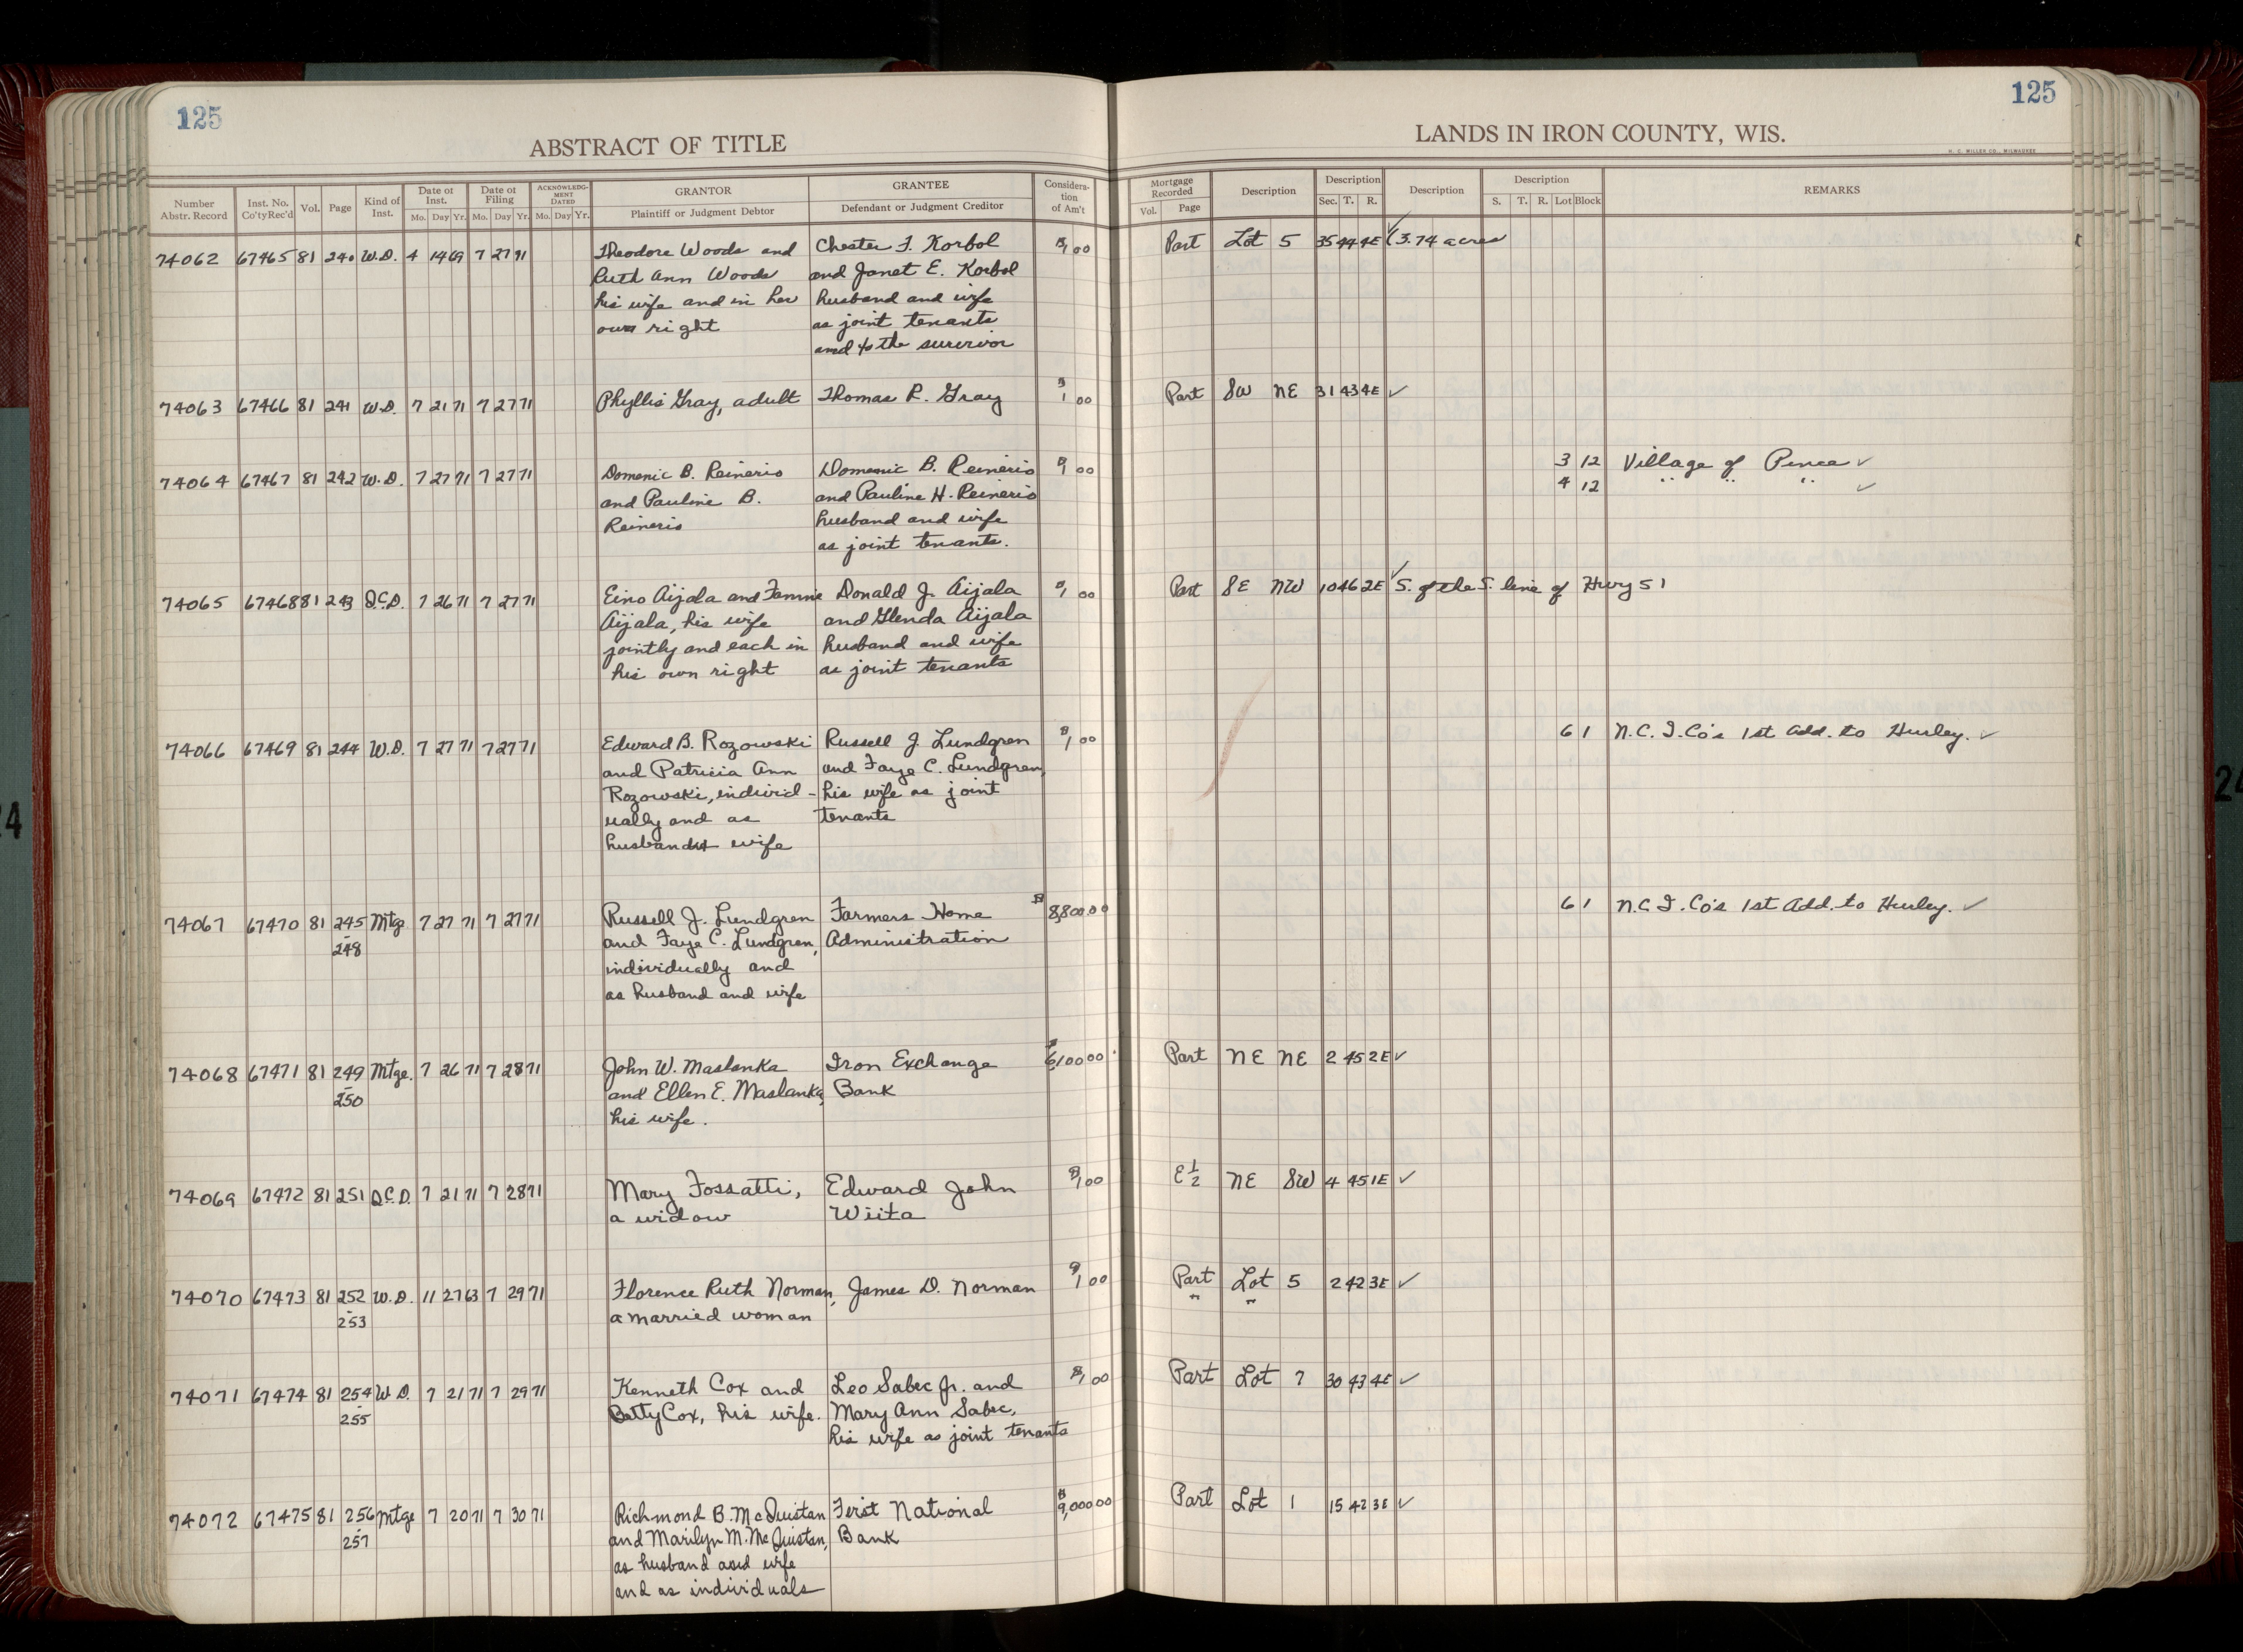 125
125
ABSTRACT OF TITLE
LANDS IN IRON COUNTY, WIS.
H. C. MILLER CO., MILWAUKEE
Number Abstr. Record Inst. No. Co'ty Rec'd Vol. Page Kind of Inst. Date of Inst. Mo. Day Yr. Date of Filing Mo. Day Yr. ACKNOWLEDGMENT DATED Mo. Day Yr. GRANTOR Plaintiff or Judgment Debtor GRANTEE Defendant or Judgment Creditor Consideration of Am't Mortgage Recorded Vol. Page Description Description Sec. T. R. Description Description S. T. R. Lot Block REMARKS
74062 67465 81 240 W.D. 4 14 69 7 27 71 Theodore Woods and Chester F. Korbol $1.00 Part Lot 5 35 44 4E ✓ (3.74 acres
Ruth Ann Woods and Janet E. Korbol
his wife and in her husband and wife
own right as joint tenants
and to the survivor
74063 67466 81 241 W.D. 7 21 71 7 27 71 Phyllis Gray, adult Thomas R. Gray $1.00 Part SW NE 31 43 4E ✓
74064 67467 81 242 W.D. 7 27 71 7 27 71 Domenic B. Reinerio Domenic B. Reinerio $1.00 3 12 Village of Pence ✓
and Pauline B. and Pauline H. Reinerio 4 12 " " " ✓
Reinerio husband and wife
as joint tenants.
74065 67468 81 243 Q.C.D. 7 26 71 7 27 71 Eino Aijala and Fannie Donald J. Aijala $1.00 Part SE NW 10 46 2E ✓ S. of the S. line of Hwy 51
Aijala, his wife and Glenda Aijala
jointly and each in husband and wife
his own right as joint tenants
74066 67469 81 244 W.D. 7 27 71 7 27 71 Edward B. Rozowski Russell J. Lundgren $1.00 6 1 N.C.I. Co's 1st Add. to Hurley. ✓
and Patricia Ann and Faye C. Lundgren,
Rozowski, individ- his wife as joint
ually and as tenants
husband & wife
74067 67470 81 245 Mtge 7 27 71 7 27 71 Russell J. Lundgren Farmers Home $8,800.00 6 1 N.C.I. Co's 1st Add. to Hurley. ✓
- 248 and Faye C. Lundgren, Administration
individually and
as husband and wife
74068 67471 81 249 Mtge. 7 26 71 7 28 71 John W. Maslanka Iron Exchange $6,100.00 Part NE NE 2 45 2E ✓
- 250 and Ellen E. Maslanka, Bank
his wife.
74069 67472 81 251 Q.C.D. 7 21 71 7 28 71 Mary Fossatti, Edward John $1.00 E 1/2 NE SW 4 45 1E ✓
a widow Wiita
74070 67473 81 252 W.D. 11 27 63 7 29 71 Florence Ruth Norman, James D. Norman $1.00 Part Lot 5 2 42 3E ✓
- 253 a married woman " "
74071 67474 81 254 W.D. 7 21 71 7 29 71 Kenneth Cox and Leo Sabec Jr. and $1.00 Part Lot 7 30 43 4E ✓
- 255 Betty Cox, his wife. Mary Ann Sabec,
his wife as joint tenants
74072 67475 81 256 Mtge 7 20 71 7 30 71 Richmond B. McQuistan First National $9,000.00 Part Lot 1 15 42 3E ✓
- 257 and Marilyn M. McQuistan, Bank
as husband and wife
and as individuals